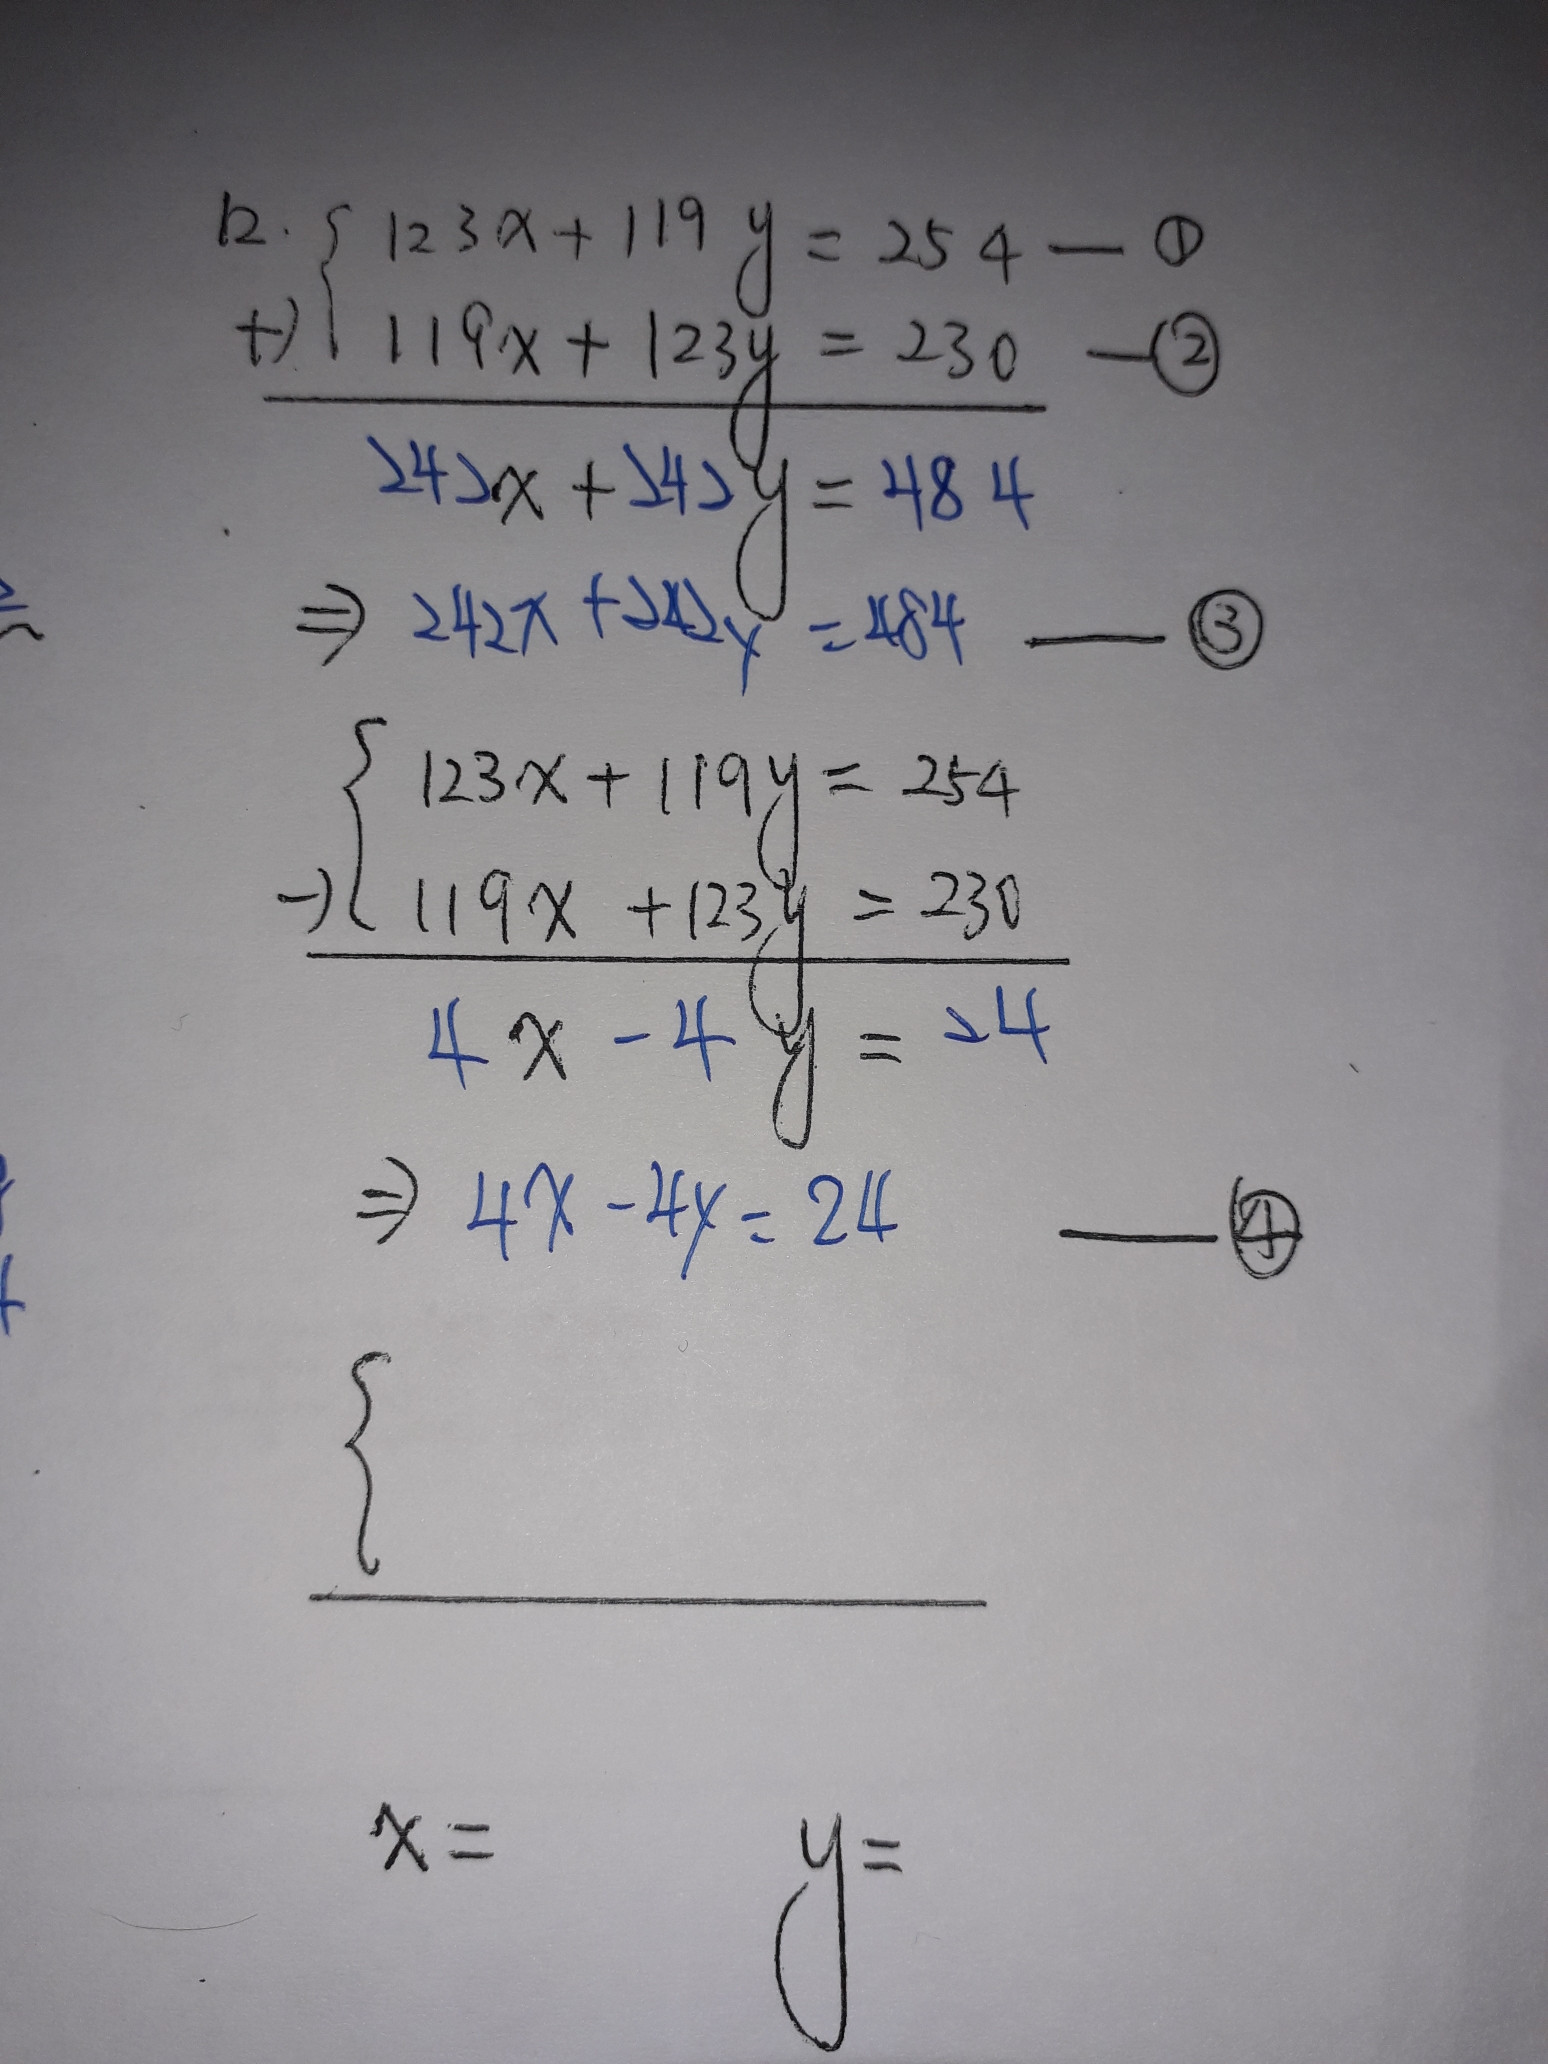 12. { 123x + 119y = 254 — ①
+) 119x + 123y = 230 — ②
242x + 242y = 484
⇒ 242x + 242y = 484 — ③
{ 123x + 119y = 254
-) 119x + 123y = 230
4x - 4y = 24
⇒ 4x - 4y = 24 — ④
{
x = y =